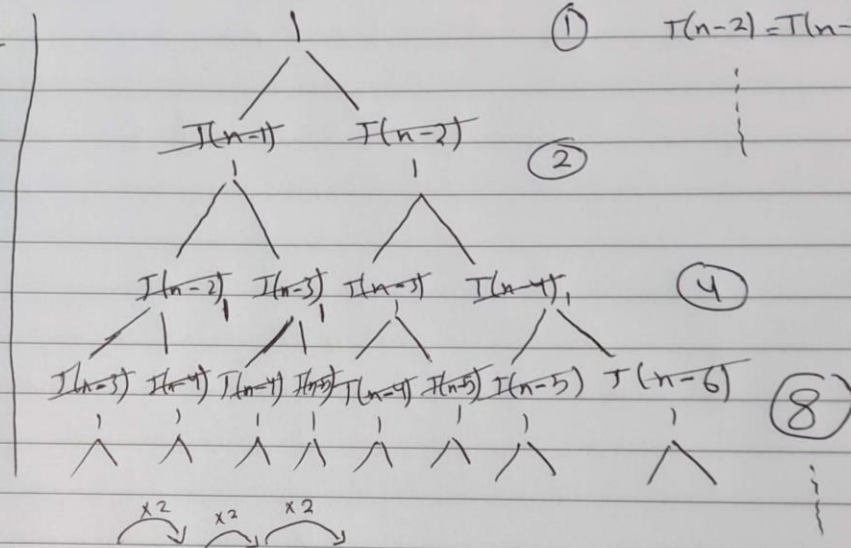 1 ① T(n-2) = T(n-
T(n-1) T(n-2)
1 1 ②
T(n-2) T(n-3) T(n-3) T(n-4)
1 1 1 1 ④
T(n-3) T(n-4) T(n-4) T(n-5) T(n-4) T(n-5) T(n-5) T(n-6)
1 1 1 1 1 1 1 1 ⑧
x2 x2 x2